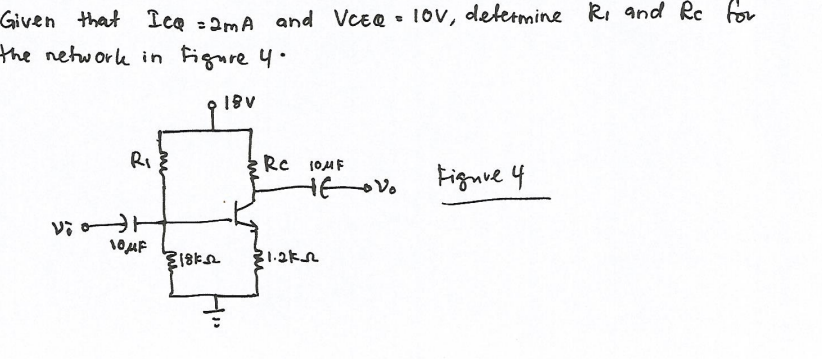 Given that ICQ = 2mA and VCEQ = 10V, determine R1 and RC for
the network in Figure 4.
18V
R1
RC
10µF
Vo
Figure 4
Vi
10µF
18kΩ
1.2kΩ